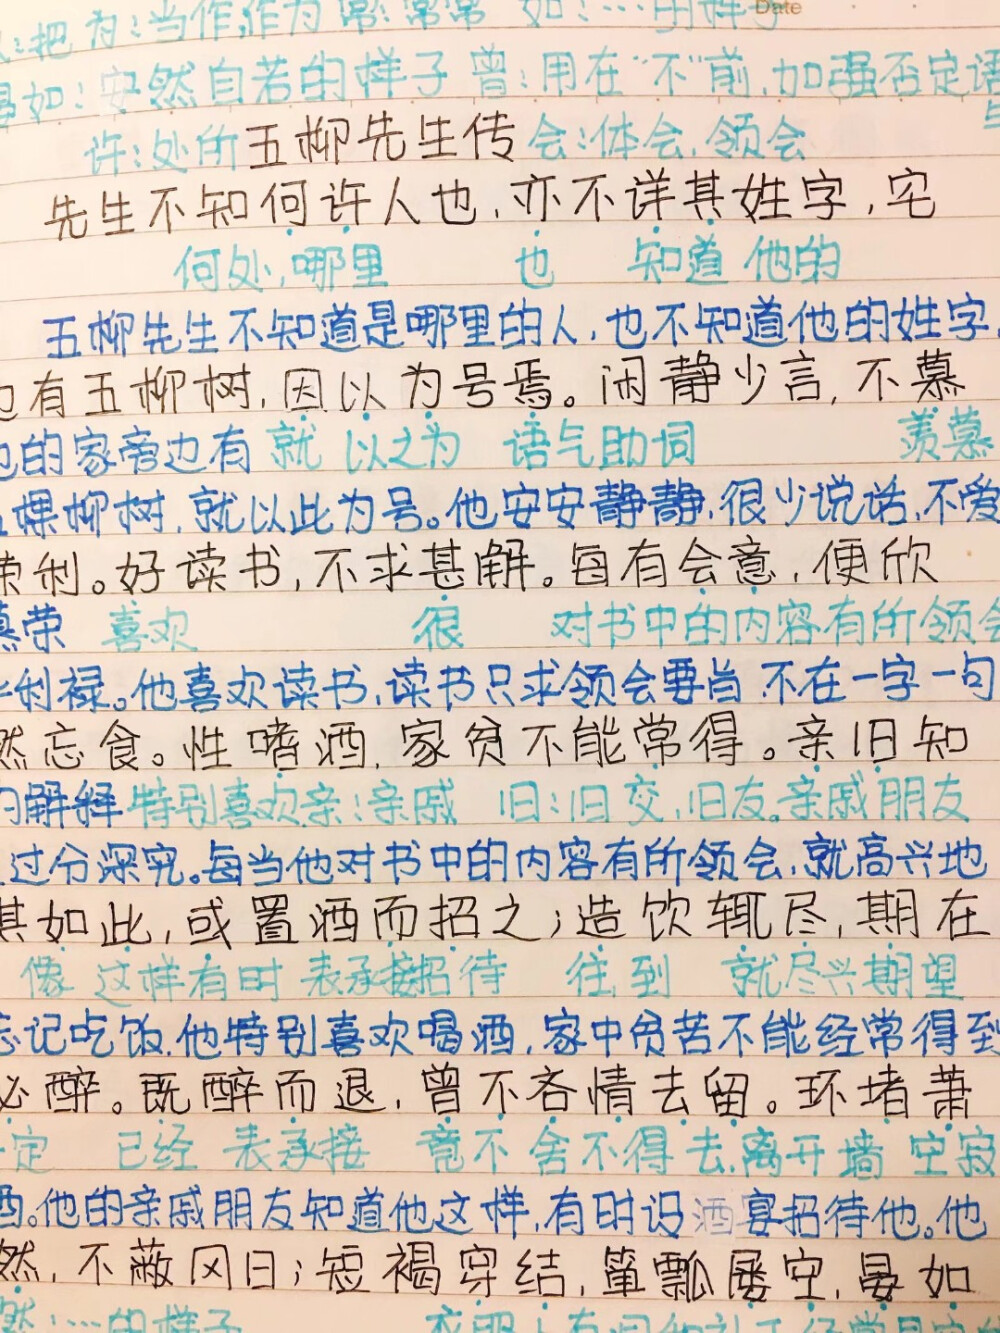 把 为:当作,作为 常:常常 如:…的样子 Date
晏如:安然自若的样子 曾:用在"不"前,加强否定语
许:处所 五柳先生传 会:体会,领会
先生不知何许人也,亦不详其姓字,宅
何处,哪里 也 知道 他的
五柳先生不知道是哪里的人,也不知道他的姓字,
有五柳树,因以为号焉。闲静少言,不慕
的家旁边有 就 以之为 语气助词 羡慕
棵柳树,就以此为号。他安安静静,很少说话,不爱
荣利。好读书,不求甚解。每有会意,便欣
慕荣 喜欢 很 对书中的内容有所领会
利禄。他喜欢读书,读书只求领会要旨 不在一字一句
然忘食。性嗜酒,家贫不能常得。亲旧知
的解释 特别喜欢 亲:亲戚 旧:旧交,旧友。亲戚朋友
过分深究。每当他对书中的内容有所领会,就高兴地
其如此,或置酒而招之;造饮辄尽,期在
像 这样 有时 表承接 招待 往,到 就 尽兴 期望
忘记吃饭,他特别喜欢喝酒,家中贫苦不能经常得到
必醉。既醉而退,曾不吝情去留。环堵萧
定 已经 表承接 竟不 舍不得 去,离开 墙 空寂
酒。他的亲戚朋友知道他这样,有时设酒宴招待他。他
然,不蔽风日;短褐穿结,箪瓢屡空,晏如
然:…的样子